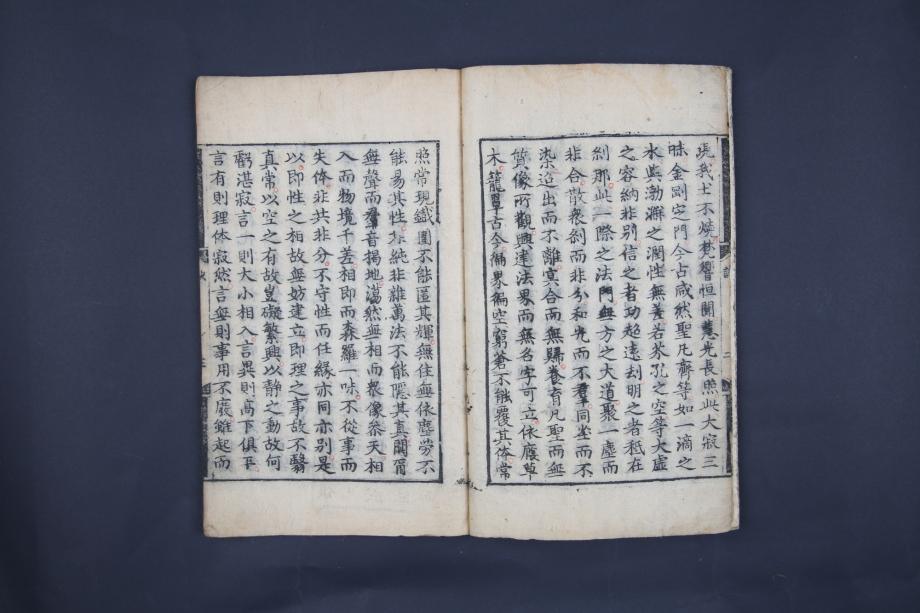 境我土不燒梵響恒聞慧光長照此大寂三
昧金剛定門今古咸然聖凡齊等如一滴之
水與渤澥之潤性無差若芥孔之空等大虛
之容納非別信之者功超遠刼明之者秖在
刹那此一際之法門無方之大道聚一塵而
非合散衆刹而非分和光而不羣同尘而不
染迢出而不離冥合而無歸養育凡聖而無
質像所觀興建法界而無名字可立依廕草
木籠罩古今徧界徧空穹蒼不能覆其体常
照常現鐵圍不能匿其輝無住無依塵勞不
能易其性非純非雜萬法不能隱其真闃爾
無聲而羣音揭地蕩然無相而衆像叅天相
入而物境千差相即而森羅一味不從事而
失体非共非分不守性而任緣亦同亦別是
以即性之相故無妨建立即理之事故不翳
真常以空之有故豈礙繁興以静之動故何
虧湛寂言一則大小相入言異則高下俱平
言有則理体寂然言無則事用不廢雖起而